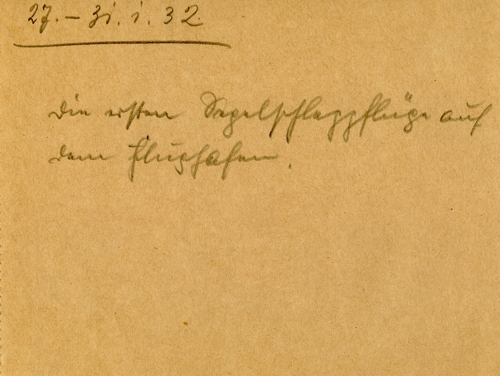 27. – 31. 1. 32.
Die ersten Segelschleppflüge auf
dem Flughafen.